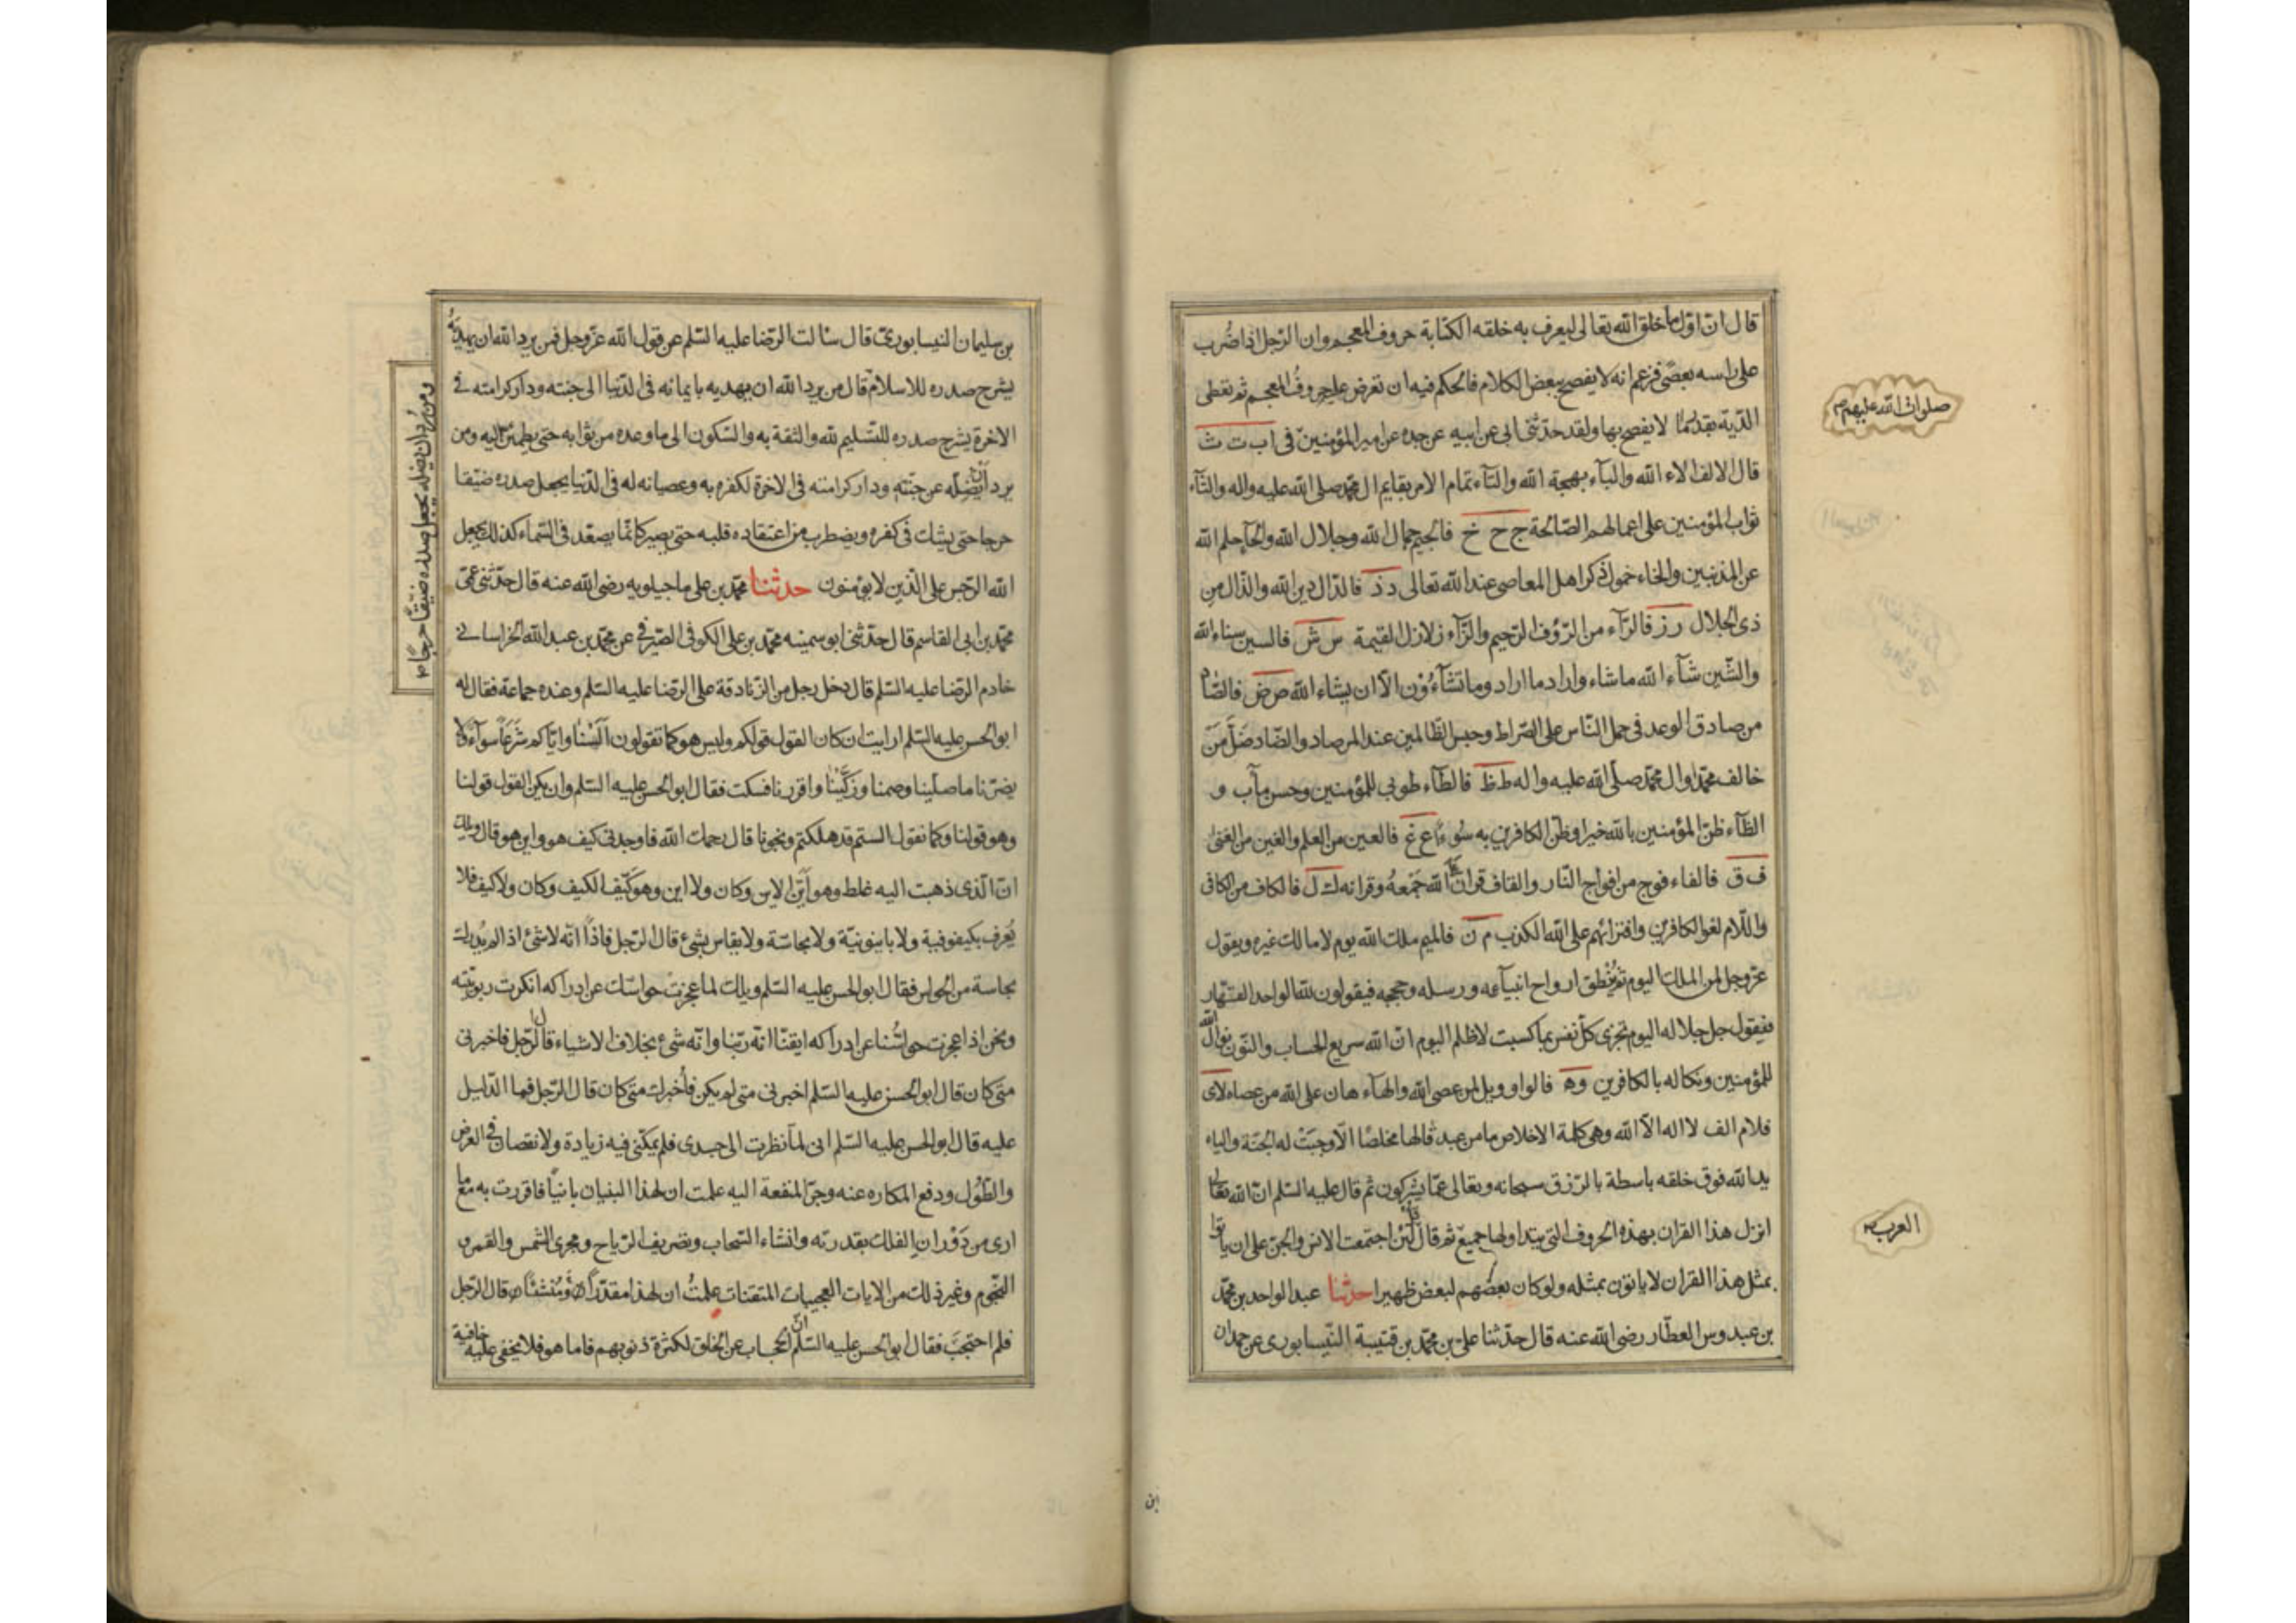 قال ان اول ما خلق الله تعالى ليعرف به خلقه الكتابة حروف المعجم وان الرجل اذا ضرب
على راسه بعصى فزعم انه لا يفصح ببعض الكلام فالحكم فيه ان تعرض عليه حروف المعجم ثم يعطى
الدية بقدر ما لا يفصح بها ولقد حدثنى ابى عن ابيه عن جده عن امير المؤمنين فى ا ب ت ث
صلوات الله عليهم
قال الالف الاء الله والبآء بهجة الله والتآء تمام الامر بقايم ال محمد صلى الله عليه واله والثآء
ثواب المؤمنين على اعمالهم الصالحة ج ح خ فالجيم جمال الله وجلال الله والحآء حلم الله
عن المذنبين والخاء خمول ذكر اهل المعاصى عند الله تعالى د ذ فالدال دين الله والذال من
ذى الجلال ر ز فالرآء من الرؤف الرحيم والزآء زلازل القيمة س ش فالسين سناء الله
والشين شآء الله ماشاء واراد ما اراد وما تشآءون الا ان يشاء الله ص ض فالصاد
من صادق الوعد فى حمل الناس على الصراط وحبس الظالمين عند المرصاد والضاد ضل من
خالف محمدا وال محمد صلى الله عليه واله ط ظ فالطآء طوبى للمؤمنين وحسن مآب و
الظآء ظن المؤمنين بالله خيرا وظن الكافرين به سوءا ع غ فالعين من العلم والغين من الغنى
ف ق فالفاء فوج من افواج النار والقاف قران على الله جمعه وقرانه ك ل فالكاف من الكافى
واللام لغو الكافرين وافترائهم على الله الكذب م ن فالميم ملك الله يوم لا مالك غيره ويقول
عز وجل لمن الملك اليوم ثم ينطق ارواح انبيآءه ورسله وحججه فيقولون لله الواحد القهار
فيقول جل جلاله اليوم تجزى كل نفس بما كسبت لا ظلم اليوم ان الله سريع الحساب والنون نوال الله
للمؤمنين ونكاله بالكافرين و ه فالواو ويل لمن عصى الله والهآء هان على الله من عصاه لا ى
فلام الف لا اله الا الله وهى كلمة الاخلاص ما من عبد قالها مخلصا الا وجبت له الجنة والياء
يد الله فوق خلقه باسطة بالرزق سبحانه وتعالى عما يشركون ثم قال عليه السلم ان الله تعالى
انزل هذا القران بهذه الحروف التى يتداولها جميع ثم قال قل لئن اجتمعت الانس والجن على ان ياتوا
العرب
بمثل هذا القران لا ياتون بمثله ولو كان بعضهم لبعض ظهيرا حدثنا عبد الواحد بن محمد
بن عبدوس العطار رضى الله عنه قال حدثنا على بن محمد بن قتيبة النيسابورى عن حمدان
بن
بن سليمان النيسابورى قال سالت الرضا عليه السلم عن قول الله عز وجل فمن يرد الله ان يهديه
يشرح صدره للاسلام قال من يرد الله ان يهديه بايمانه فى الدنيا الى جنته ودار كرامته فى
ومن يرد ان يضله يجعل صدره ضيقا حرجا
الاخرة يشرح صدره للتسليم لله والثقة به والسكون الى ما وعده من ثوابه حتى يطمئن اليه ومن
يرد ان يضله عن جنته ودار كرامته فى الاخرة لكفره به وعصيانه له فى الدنيا يجعل صدره ضيقا
حرجا حتى يشك فى كفره ويضطرب من اعتقاده قلبه حتى يصير كانما يصعد فى السماء كذلك يجعل
الله الرجس على الذين لا يؤمنون حدثنا محمد بن على ماجيلويه رضى الله عنه قال حدثنى عمى
محمد بن ابى القاسم قال حدثنى ابو سمينه محمد بن على الكوفى الصيرفى عن محمد بن عبد الله الخراسانى
خادم الرضا عليه السلم قال دخل رجل من الزنادقة على الرضا عليه السلم وعنده جماعة فقال له
ابو الحسن عليه السلم ارايت ان كان القول قولكم وليس هو كما تقولون السنا واياكم شرعا سوآء ولا
يضرنا ما صلينا وصمنا وزكينا واقررنا فسكت فقال ابو الحسن عليه السلم وان يكن القول قولنا
وهو قولنا وكما نقول الستم قد هلكتم ونجونا قال رحمك الله فاوجدنى كيف هو واين هو قال ويلك
ان الذى ذهبت اليه غلط وهو اين الاين وكان ولا اين وهو كيف الكيف وكان ولا كيف فلا
يعرف بكيفوفية ولا باينونية ولا بحاسة ولا يقاس بشئ قال الرجل فاذا انه لاشئ اذا لم يدرك
بحاسة من الحواس فقال ابو الحسن عليه السلم ويلك لما عجزت حواسك عن ادراكه انكرت ربوبيته
ونحن اذا عجزت حواسنا عن ادراكه ايقنا انه ربنا وانه شئ بخلاف الاشياء قال الرجل فاخبرنى
متى كان قال ابو الحسن عليه السلم اخبرنى متى لم يكن فاخبرك متى كان قال الرجل فما الدليل
عليه قال ابو الحسن عليه السلم انى لما نظرت الى جسدى فلم يمكنى فيه زيادة ولا نقصان فى العرض
والطول ودفع المكاره عنه وجر المنفعة اليه علمت ان لهذا البنيان بانيا فاقررت به مع ما
ارى من دوران الفلك بقدرته وانشاء السحاب وتصريف الرياح ومجرى الشمس والقمر و
النجوم وغير ذلك من الايات العجيبات المتقنات علمت ان لهذا مقدرا ومنشئا قال الرجل
فلم احتجب فقال ابو الحسن عليه السلم ان الحجاب عن الخلق لكثرة ذنوبهم فاما هو فلا يخفى عليه خافية